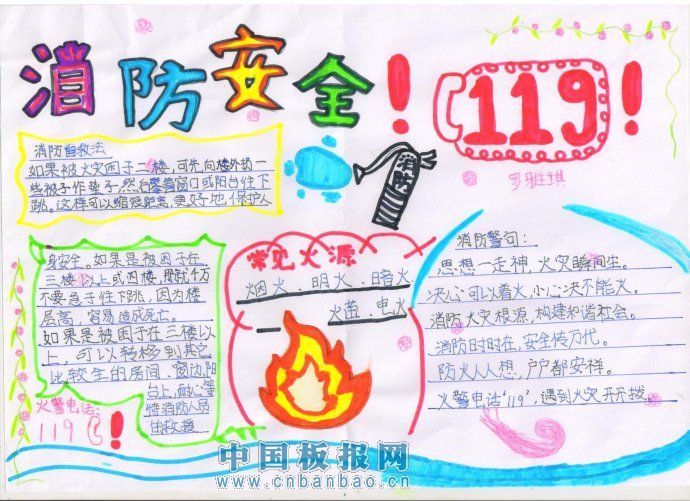 消防安全！
119！
罗雅琪
消防
消防自救法
如果被火灾困于二楼,可先向楼外扔一
些被子作垫子,然后攀着窗口或阳台往下
跳。这样可以缩短距离,更好地保护人
身安全。如果是被困在
三楼以上或四楼,那就千万
不要急于往下跳,因为楼
层高,容易造成死亡。
如果是被困在三楼以
上,可以转移到其它
比较安全的房间、窗边、阳
台上,耐心等
待消防人员
来救援
火警电话:
119！
常见火源
烟火、明火、暗火
火苗、电火
消防警句:
思想一走神,火灾瞬间生。
决心可以看火,小心决不能火。
消防火灾根源,构建和谐社会。
消防时时在,安全传万代。
防火人人想,户户都安祥。
火警电话‘119’,遇到火灾开开拨。
中国板报网
www.cnbanbao.cn